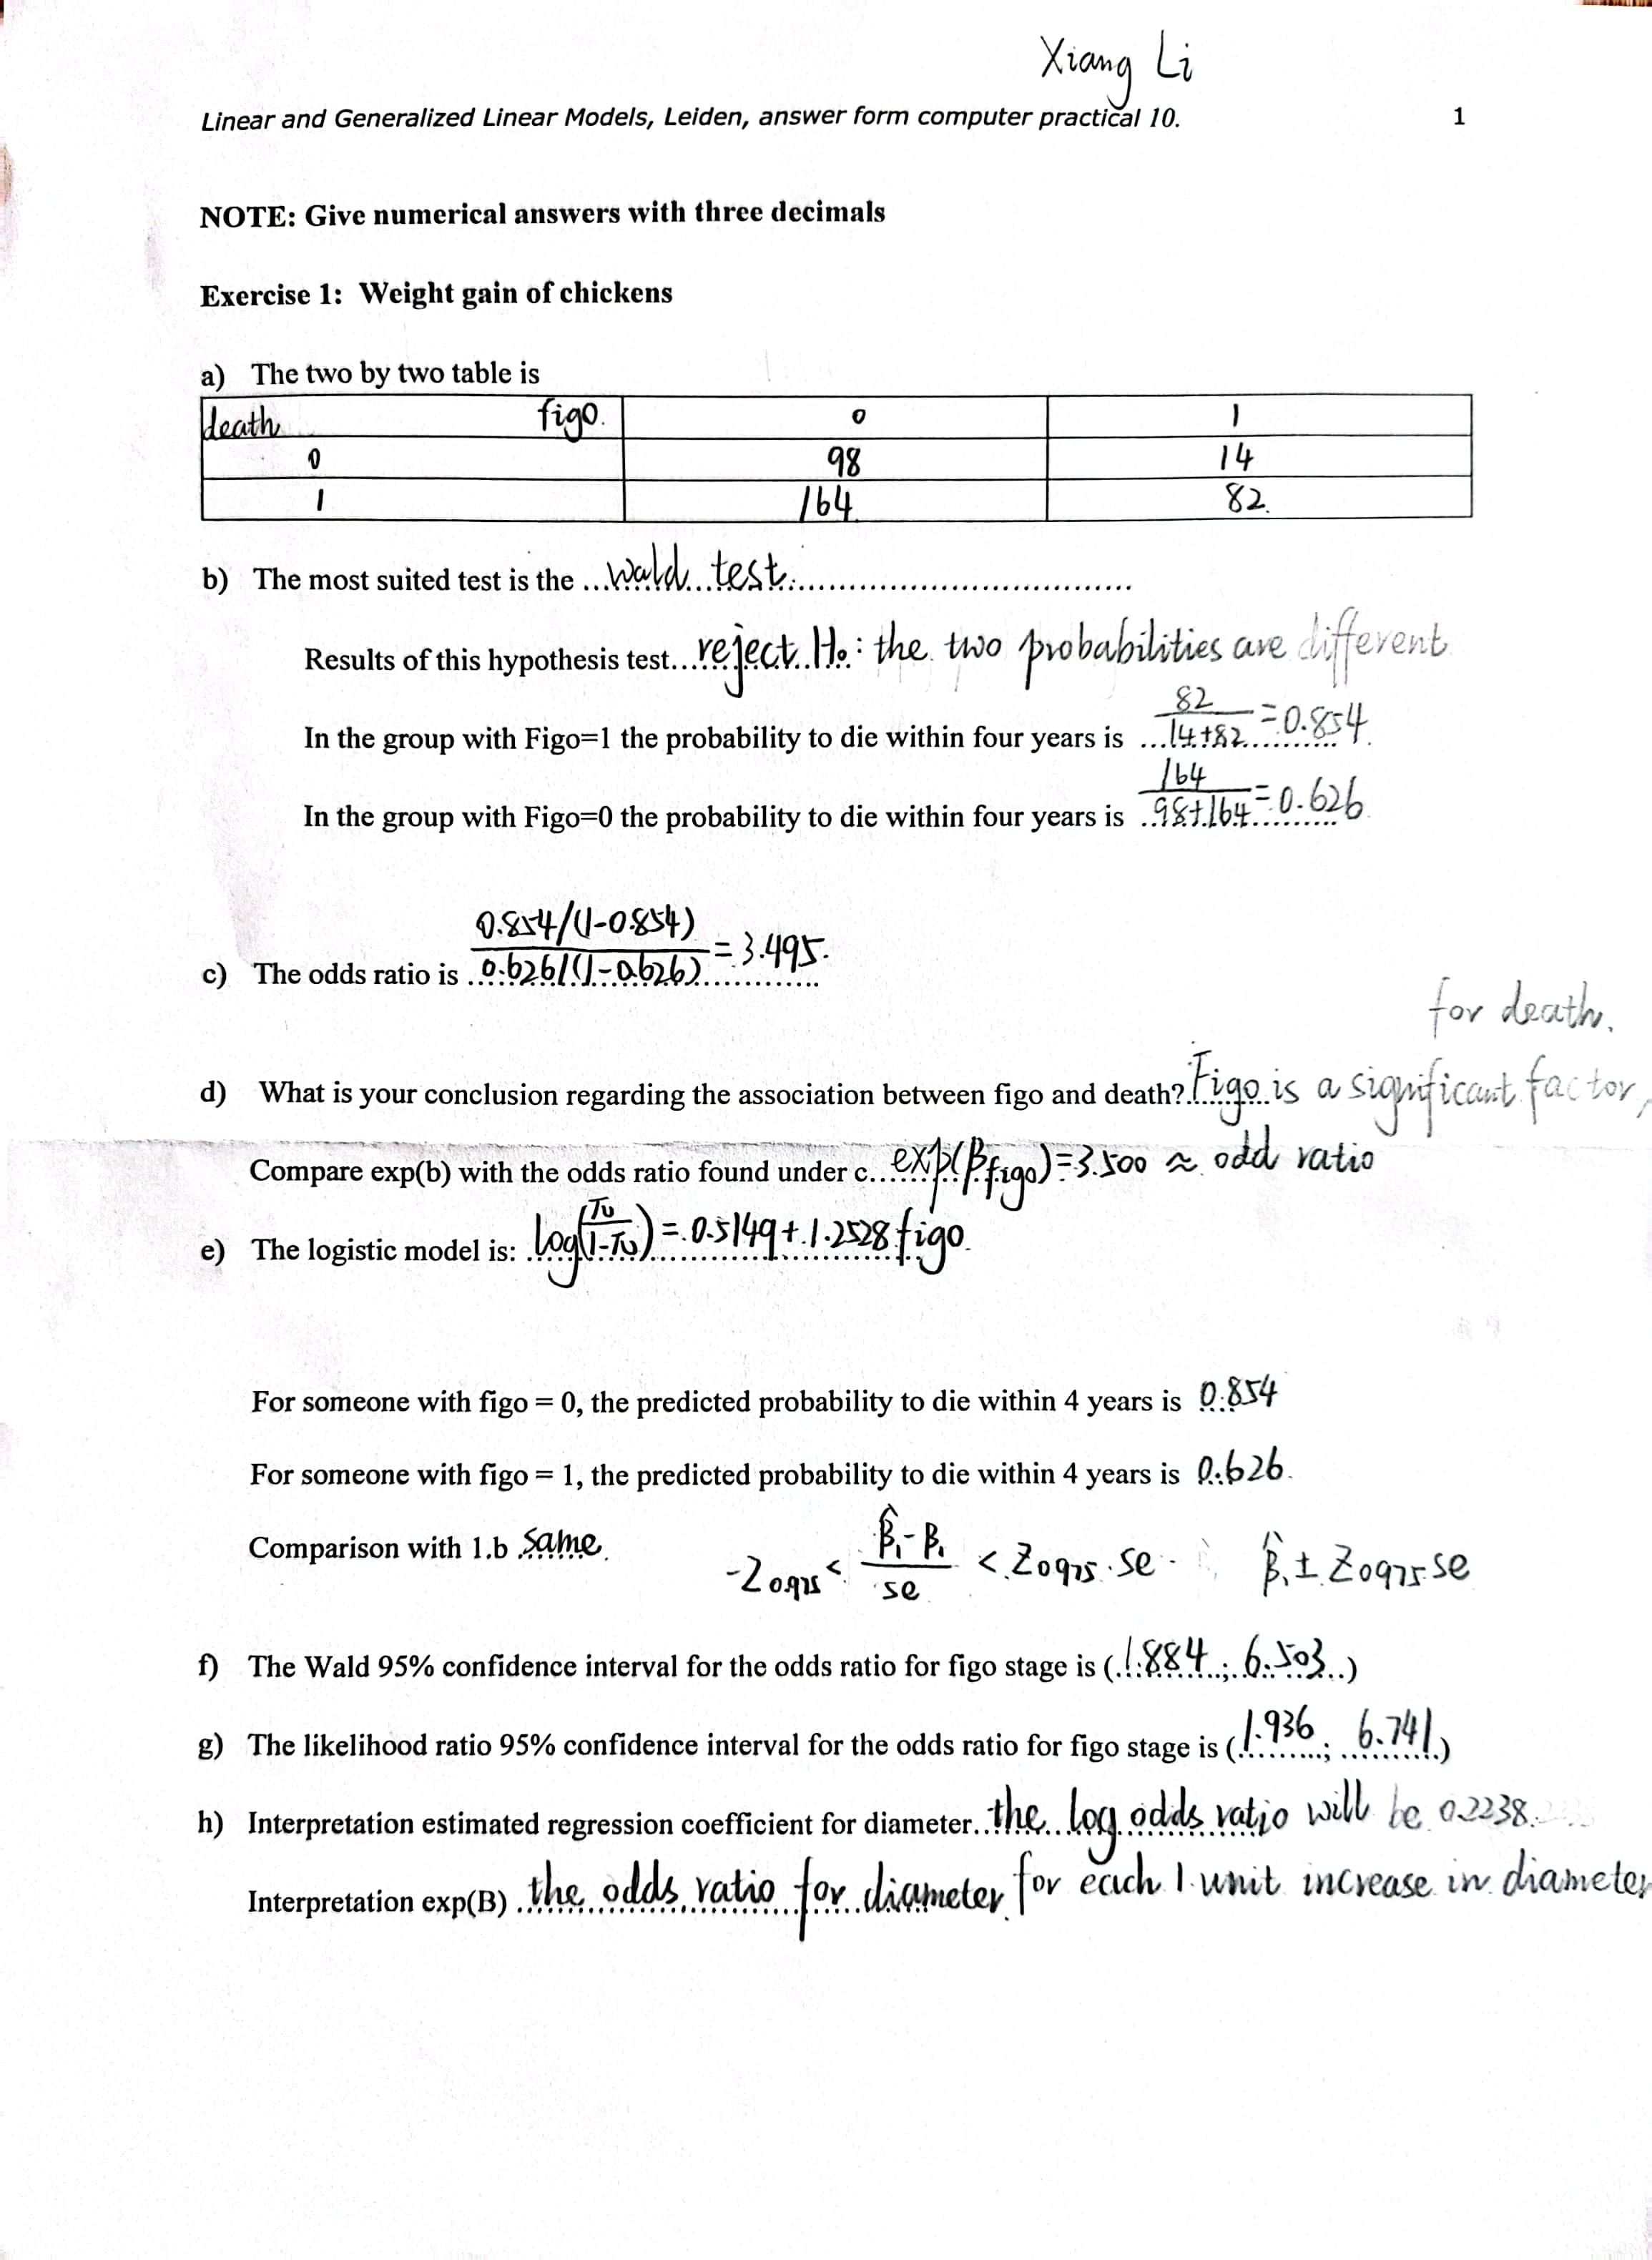 Xiang Li
Linear and Generalized Linear Models, Leiden, answer form computer practical 10. 1
NOTE: Give numerical answers with three decimals
Exercise 1: Weight gain of chickens
a) The two by two table is
death figo. 0 1
0 98 14
1 164 82.
b) The most suited test is the ...wald test...
Results of this hypothesis test...reject H₀: the two probabilities are different
In the group with Figo=1 the probability to die within four years is 82/(14+82) = 0.854.
In the group with Figo=0 the probability to die within four years is 164/(98+164) = 0.626
c) The odds ratio is (0.854/(1-0.854))/(0.626/(1-0.626)) = 3.495.
for death.
d) What is your conclusion regarding the association between figo and death? Figo is a significant factor,
Compare exp(b) with the odds ratio found under c...exp(β figo)=3.500 ≈ odd ratio
e) The logistic model is: log(π/(1-π)) = 0.5149 + 1.2528 figo.
For someone with figo = 0, the predicted probability to die within 4 years is 0.854
For someone with figo = 1, the predicted probability to die within 4 years is 0.626.
Comparison with 1.b same.
-Z0.975 < (β̂₁-β₁)/se < Z0975·se β̂₁ ± Z0975 se
f) The Wald 95% confidence interval for the odds ratio for figo stage is (1.884 ; 6.503)
g) The likelihood ratio 95% confidence interval for the odds ratio for figo stage is (1.936 ; 6.741)
h) Interpretation estimated regression coefficient for diameter...the log odds ratio will be 0.2238.
Interpretation exp(B) ...the odds ratio for diameter for each 1 unit increase in diameter